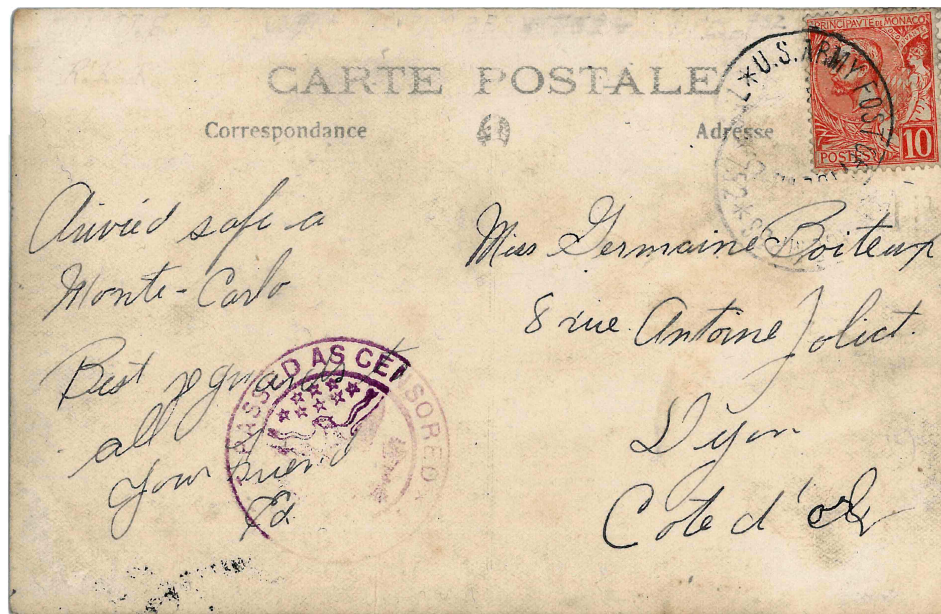 CARTE POSTALE
Correspondance
Adresse
PRINCIPAUTE DE MONACO
POSTES 10
* U.S. ARMY POST
Arivied safe a
Monte-Carlo
Best reguards t
all
your friend
Ed.
PASSED AS CENSORED
Miss Germaine Boiteux
8 rue Antoine Joliet.
Dijon
Cote d'or